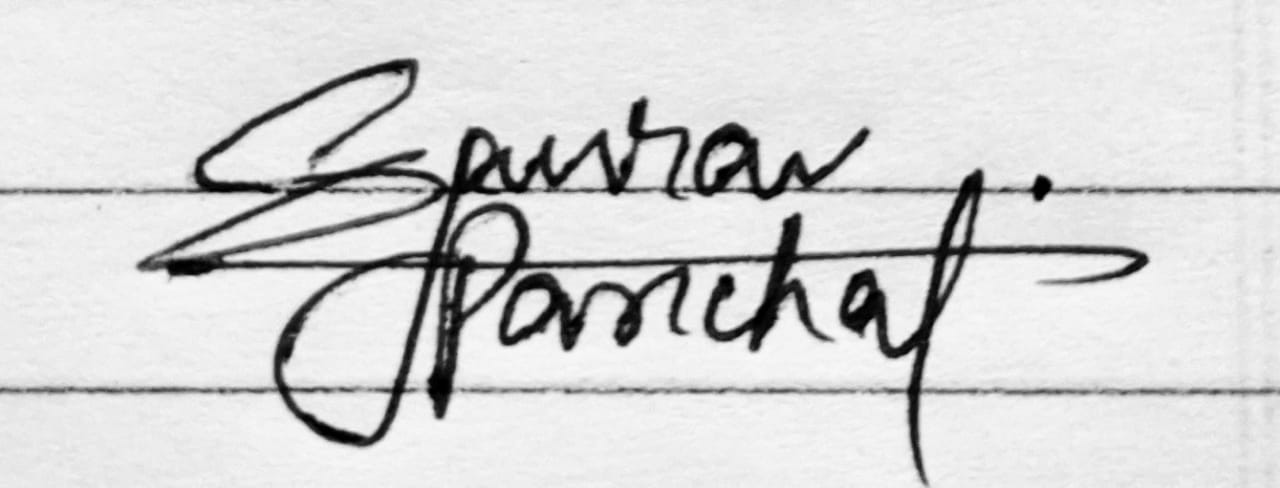 Gaurav
Panchal